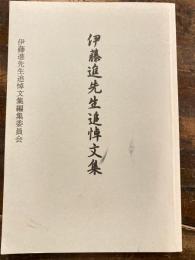 伊藤進先生追悼文集
伊藤進先生追悼文集編集委員会